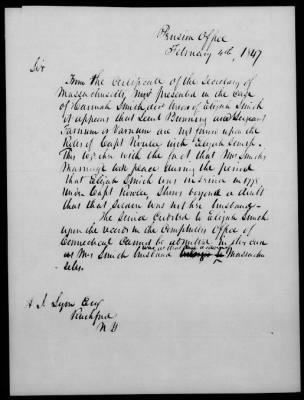 Pension Office
February 4th, 1847
Sir
From the certificate of the Secretary of
Massachusetts now presented in the case
of Hannah Smith, late widow of Elijah Smith
it appears that Lieut and Sergeant
Farnum or Varnum are not found upon the
Rolls of Capt with Elijah Smith.
This together with the fact, that Mrs Smith's
Marriage took place during the period
that Elijah Smith was in service in 1778
under Capt shows beyond a doubt
that that soldier was not her husband.
The service credited to Elijah Smith
upon the records in the Comptroller's Office of
Connecticut cannot be admitted in this case
as Mrs Smith's husband was at that time a
belongs to Massachu
setts.
A. J. Lyon Esq
Rushford
N. Y.